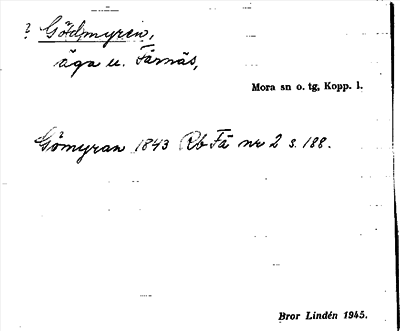 ? Gö(d)myren,
äga u. Färnäs,
Mora sn o. tg, Kopp. l.
Gömyran 1843 Rb Fä nr 2 s. 188.
Bror Lindén 1945.